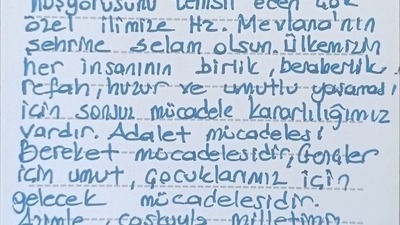 hoşgörüsünü temsil eden çok
özel ilimize Hz. Mevlana'nın
şehrine selam olsun. Ülkemizin
her insanının birlik, beraberlik,
refah, huzur ve umutlu yaşaması
için sonsuz mücadele kararlılığımız
vardır. Adalet mücadelesi
Bereket mücadelesidir, Gençler
için umut, çocuklarımız için
gelecek mücadelesidir.
Azimle, coşkuyla milletimin